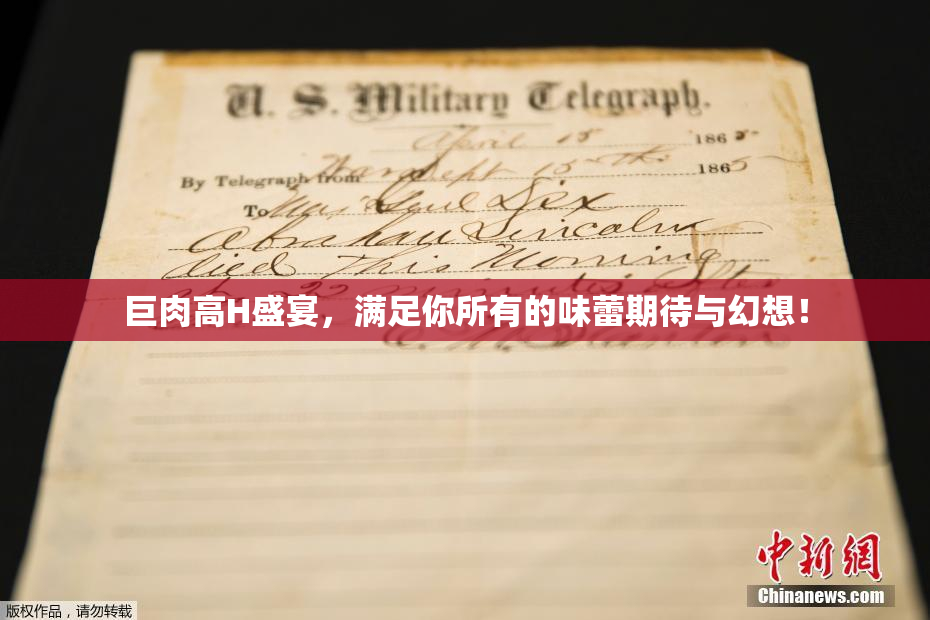 U. S. Military Telegraph.
April 15 1865
By Telegraph from War Dept 15th 1865
To Maj Genl Dix
Abraham Lincoln
died This Morning
at 22 minutes after
巨肉高H盛宴，满足你所有的味蕾期待与幻想！
E. M. Stanton
中新网
Chinanews.com
版权作品，请勿转载